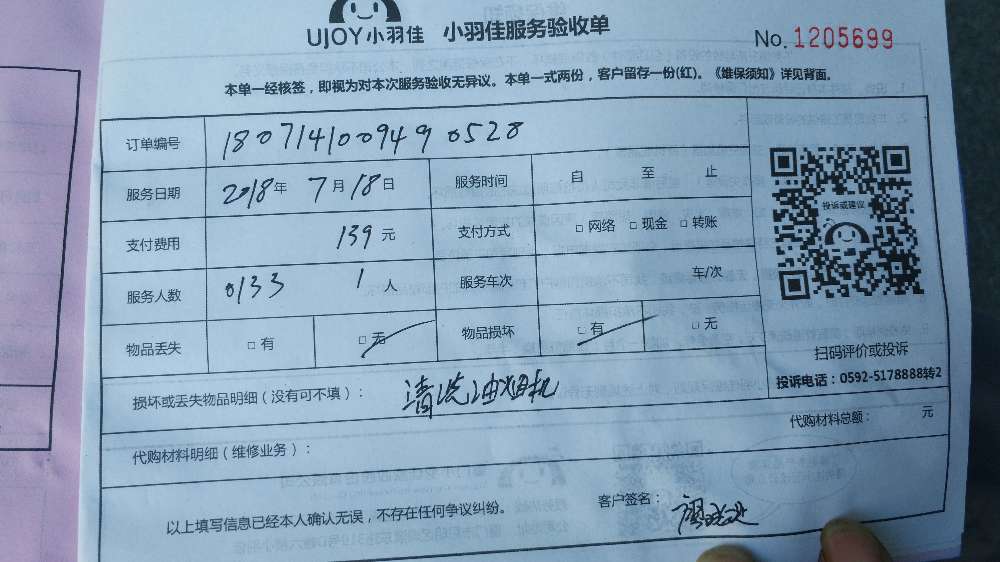 UJOY小羽佳 小羽佳服务验收单
No. 1205699
本单一经核签，即视为对本次服务验收无异议。本单一式两份，客户留存一份(红)。《维保须知》详见背面。
订单编号 180714100949 0528
服务日期 2018年 7月18日 服务时间 自 至 止
支付费用 139元 支付方式 □网络 □现金 □转账
服务人数 0133 1人 服务车次 车/次
物品丢失 □有 □无 物品损坏 □有 □无
投诉或建议
扫码评价或投诉
投诉电话：0592-5178888转2
损坏或丢失物品明细（没有可不填）： 清洗油烟机
代购材料总额： 元
代购材料明细（维修业务）：
以上填写信息已经本人确认无误，不存在任何争议纠纷。 客户签名：